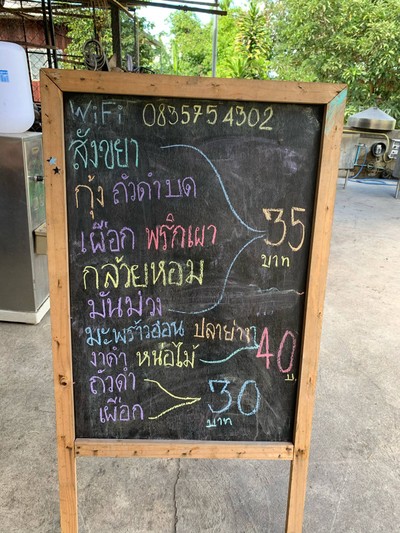 WiFi 0835754302
สังขยา
กุ้ง ถั่วดำบด
เผือก พริกเผา
35
บาท
กล้วยหอม
มันม่วง
มะพร้าวอ่อน ปลาย่าง
งาดำ หน่อไม้
40
ถั่วดำ
เผือก
30
บาท